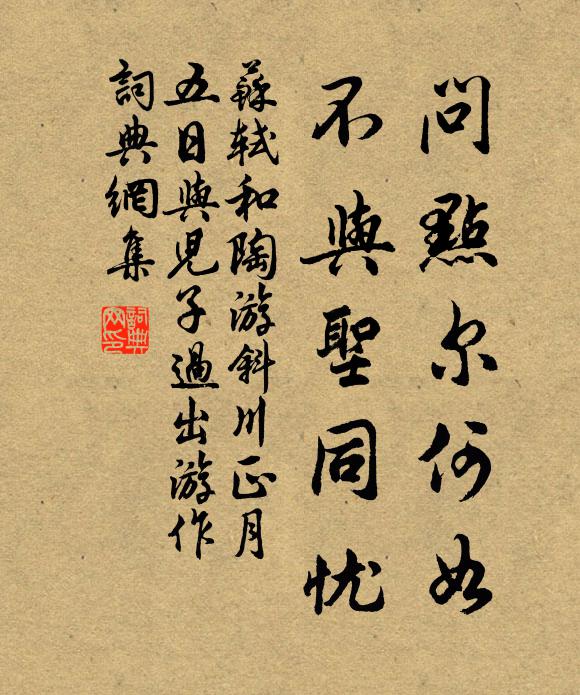 問點尔何如
不與聖同忧
蘇軾和陶游斜川正月
五日與児子過出游作
詞典網集
詞典网印